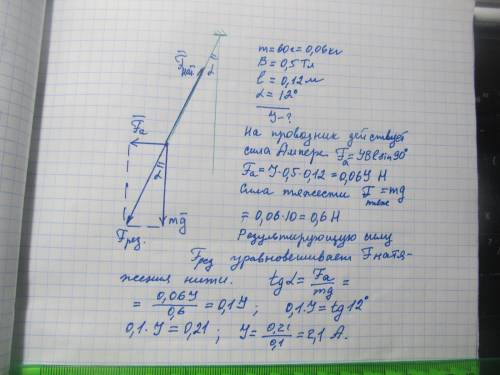 m=60г=0,06кг
B=0,5Тл
l=0,12м
α=12°
I-?
F̄нат
α
F̄а
α
mḡ
F̄рез.
На проводник действует
сила Ампера. Fа=IBlsin90°
Fа=I·0,5·0,12=0,06I Н
Сила тяжести Fтяж=mg
=0,06·10=0,6Н
Результирующую силу
Fрез уравновешивает Fнатя-
жения нити. tgα=Fа/mg=
=0,06I/0,6=0,1I; 0,1·I=tg12°
0,1·I=0,21; I=0,21/0,1=2,1 А.